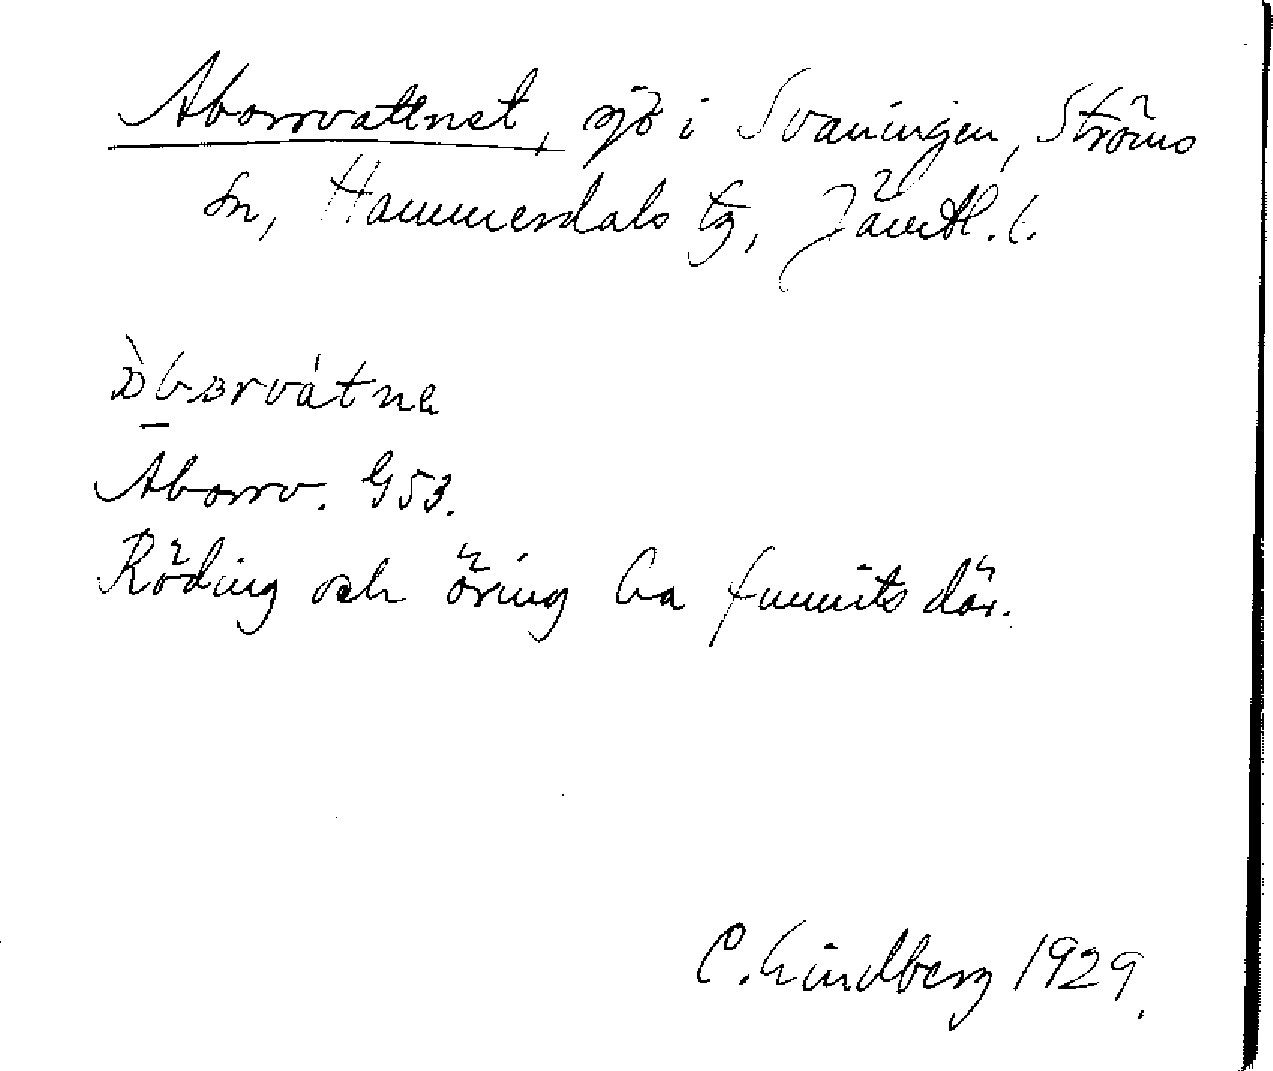 Aborrvattnet, sjö i Svaningen, Ströms
sn, Hammerdals tg, Jämtl. l.
Aborrv. G53.
Röding och öring ha funnits där.
C. Lindberg 1929.